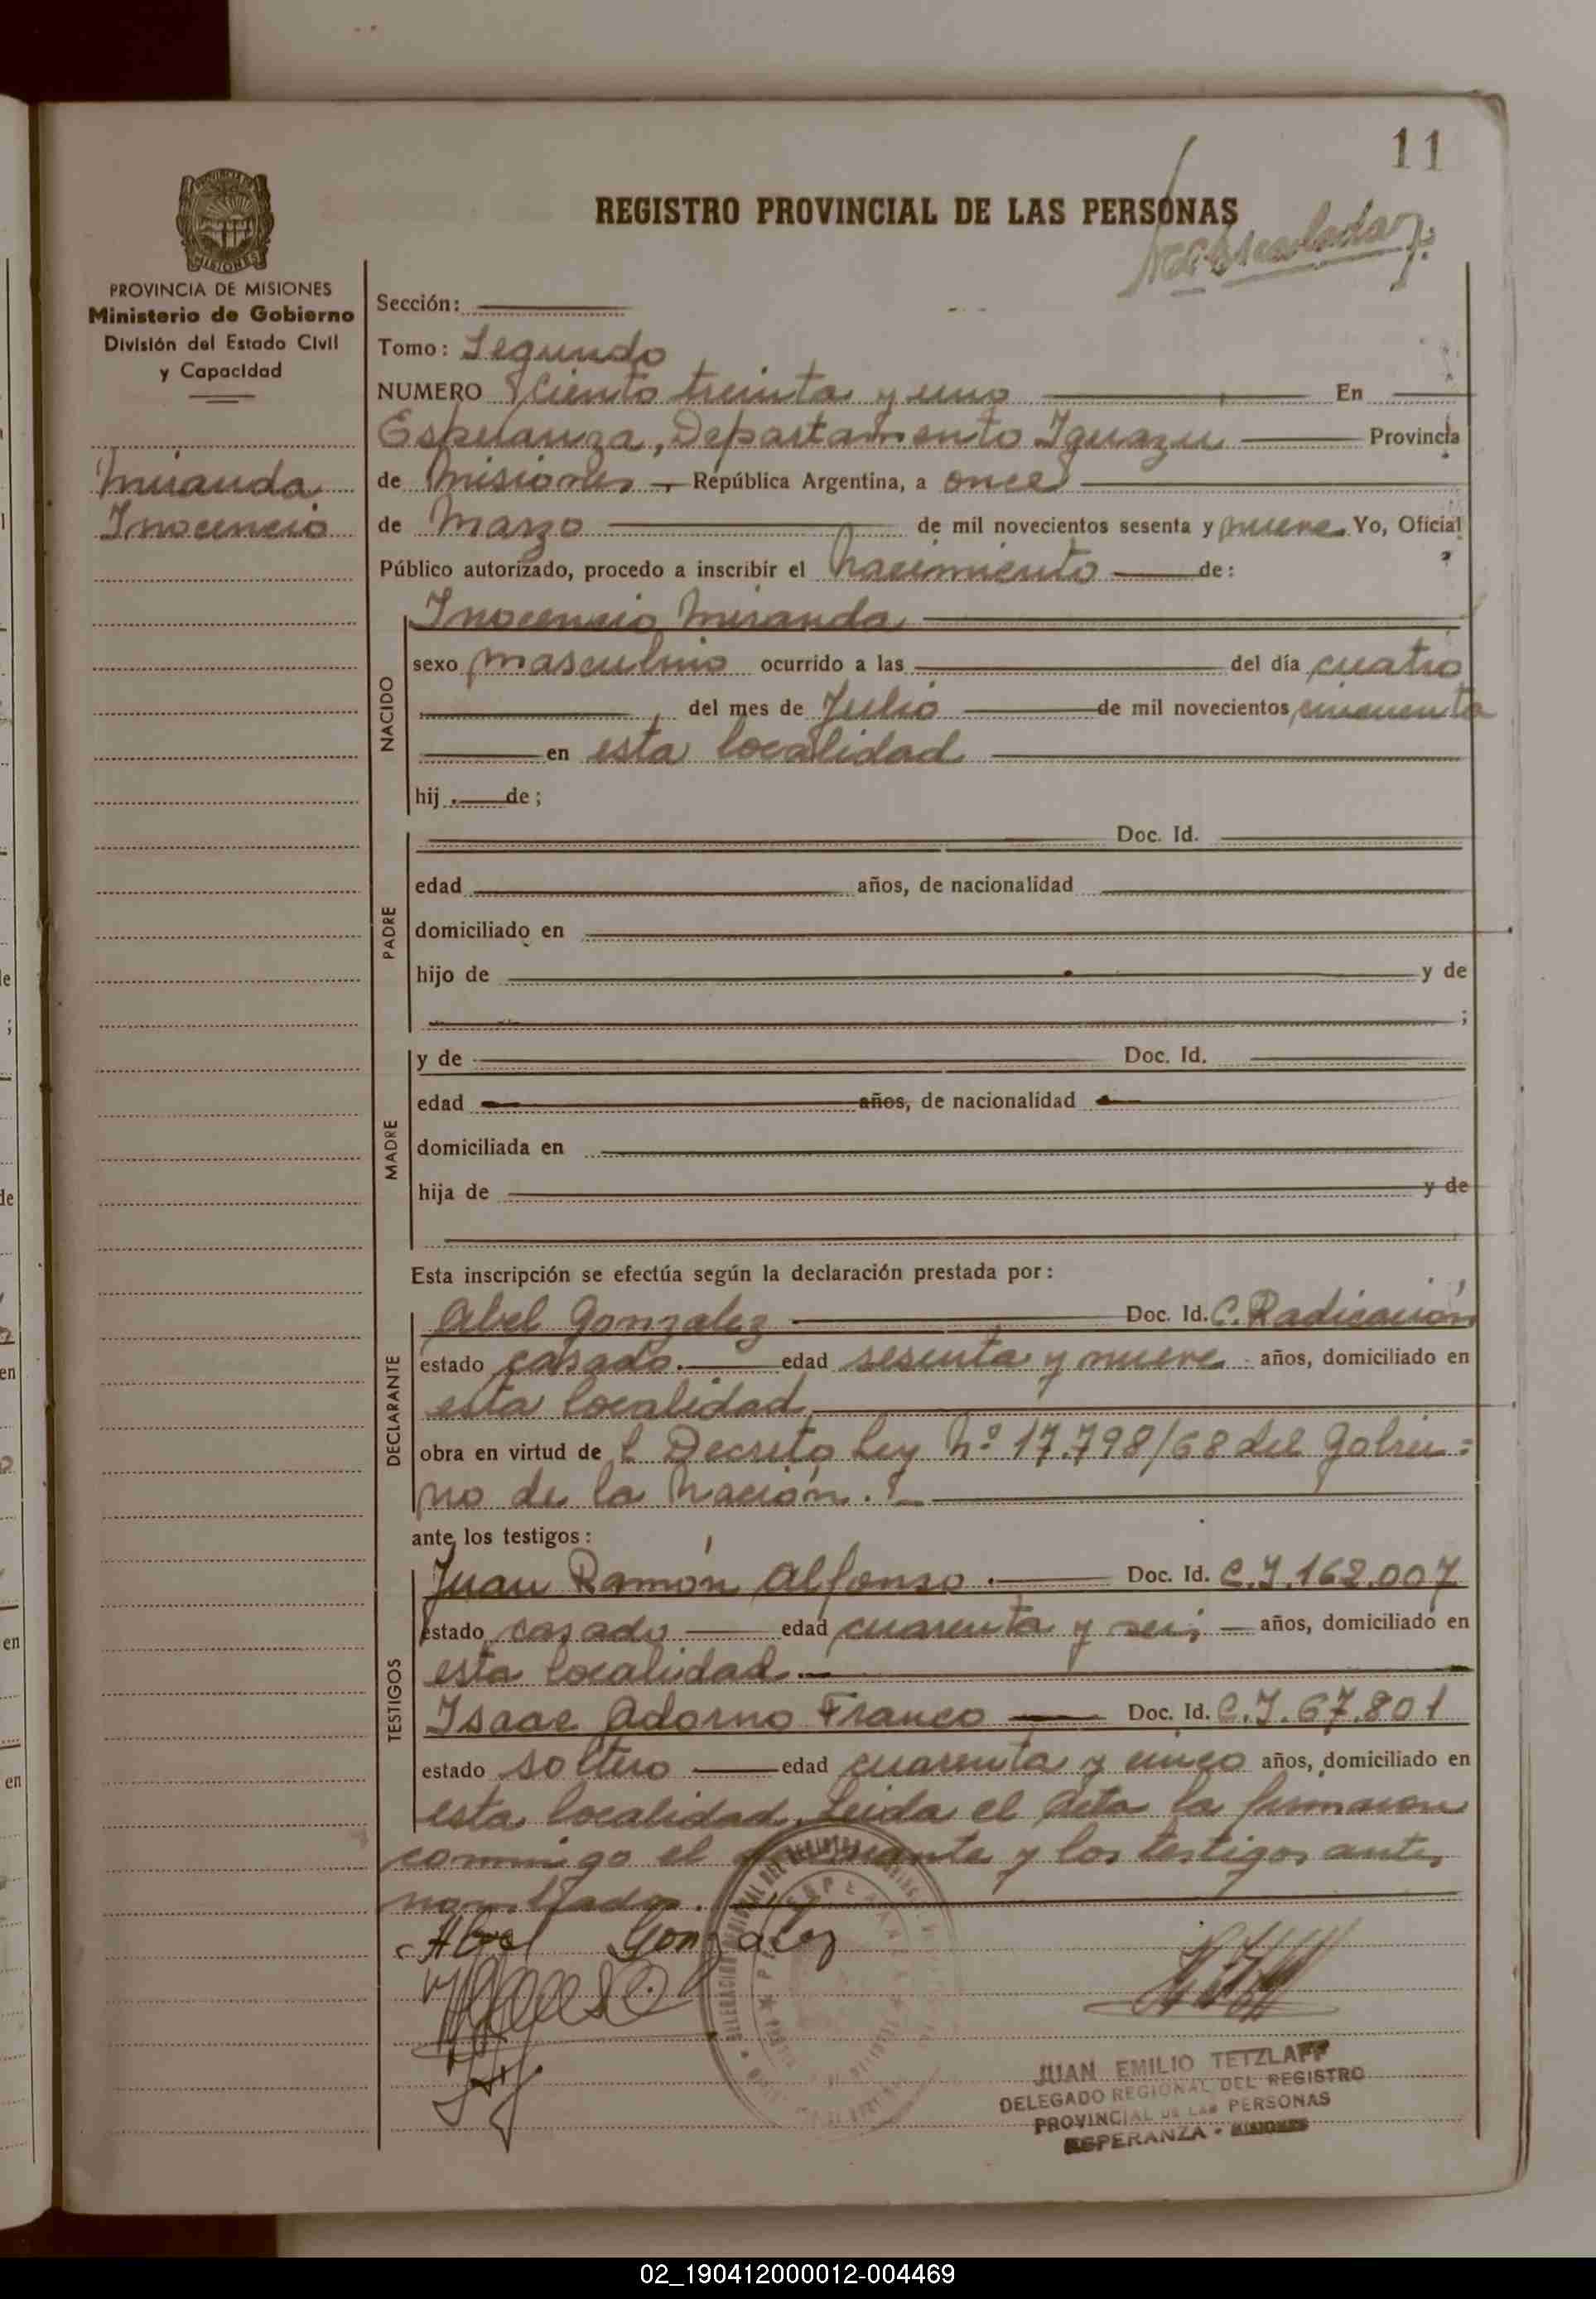 11
REGISTRO PROVINCIAL DE LAS PERSONAS
PROVINCIA DE MISIONES
Ministerio de Gobierno
División del Estado Civil
y Capacidad
Miranda
Inocencio
Sección:
Tomo: Segundo
NUMERO Ciento treinta y uno En
Esperanza, Departamento Iguazu Provincia
de Misiones República Argentina, a once
de Marzo de mil novecientos sesenta y nueve Yo, Oficial
Público autorizado, procedo a inscribir el Nacimiento de:
Inocencio Miranda
NACIDO
sexo masculino ocurrido a las del día cuatro
del mes de Julio de mil novecientos cincuenta
en esta localidad
hij de;
PADRE
Doc. Id.
edad años, de nacionalidad
domiciliado en
hijo de y de
;
MADRE
y de Doc. Id.
edad años, de nacionalidad
domiciliada en
hija de y de
Esta inscripción se efectúa según la declaración prestada por:
DECLARANTE
Abel Gonzalez Doc. Id. C. Radicación
estado casado. edad sesenta y nueve años, domiciliado en
esta localidad
obra en virtud de l Decreto Ley Nº 17.798/68 del Gobier=
no de la Nación.
ante los testigos:
TESTIGOS
Juan Ramón Alfonso. Doc. Id. C.I. 162.007
estado casado edad cuarenta y seis años, domiciliado en
esta localidad.
Isaac Adorno Franco Doc. Id. C.I. 67.801
estado soltero edad cuarenta y cinco años, domiciliado en
esta localidad. Leida el Acta la firmaron
conmigo el y los testigos antes
nombrados.
Abel Gonzalez
JUAN EMILIO TETZLAFF
DELEGADO REGIONAL DEL REGISTRO
PROVINCIAL DE LAS PERSONAS
ESPERANZA - MISIONES
02_190412000012-004469